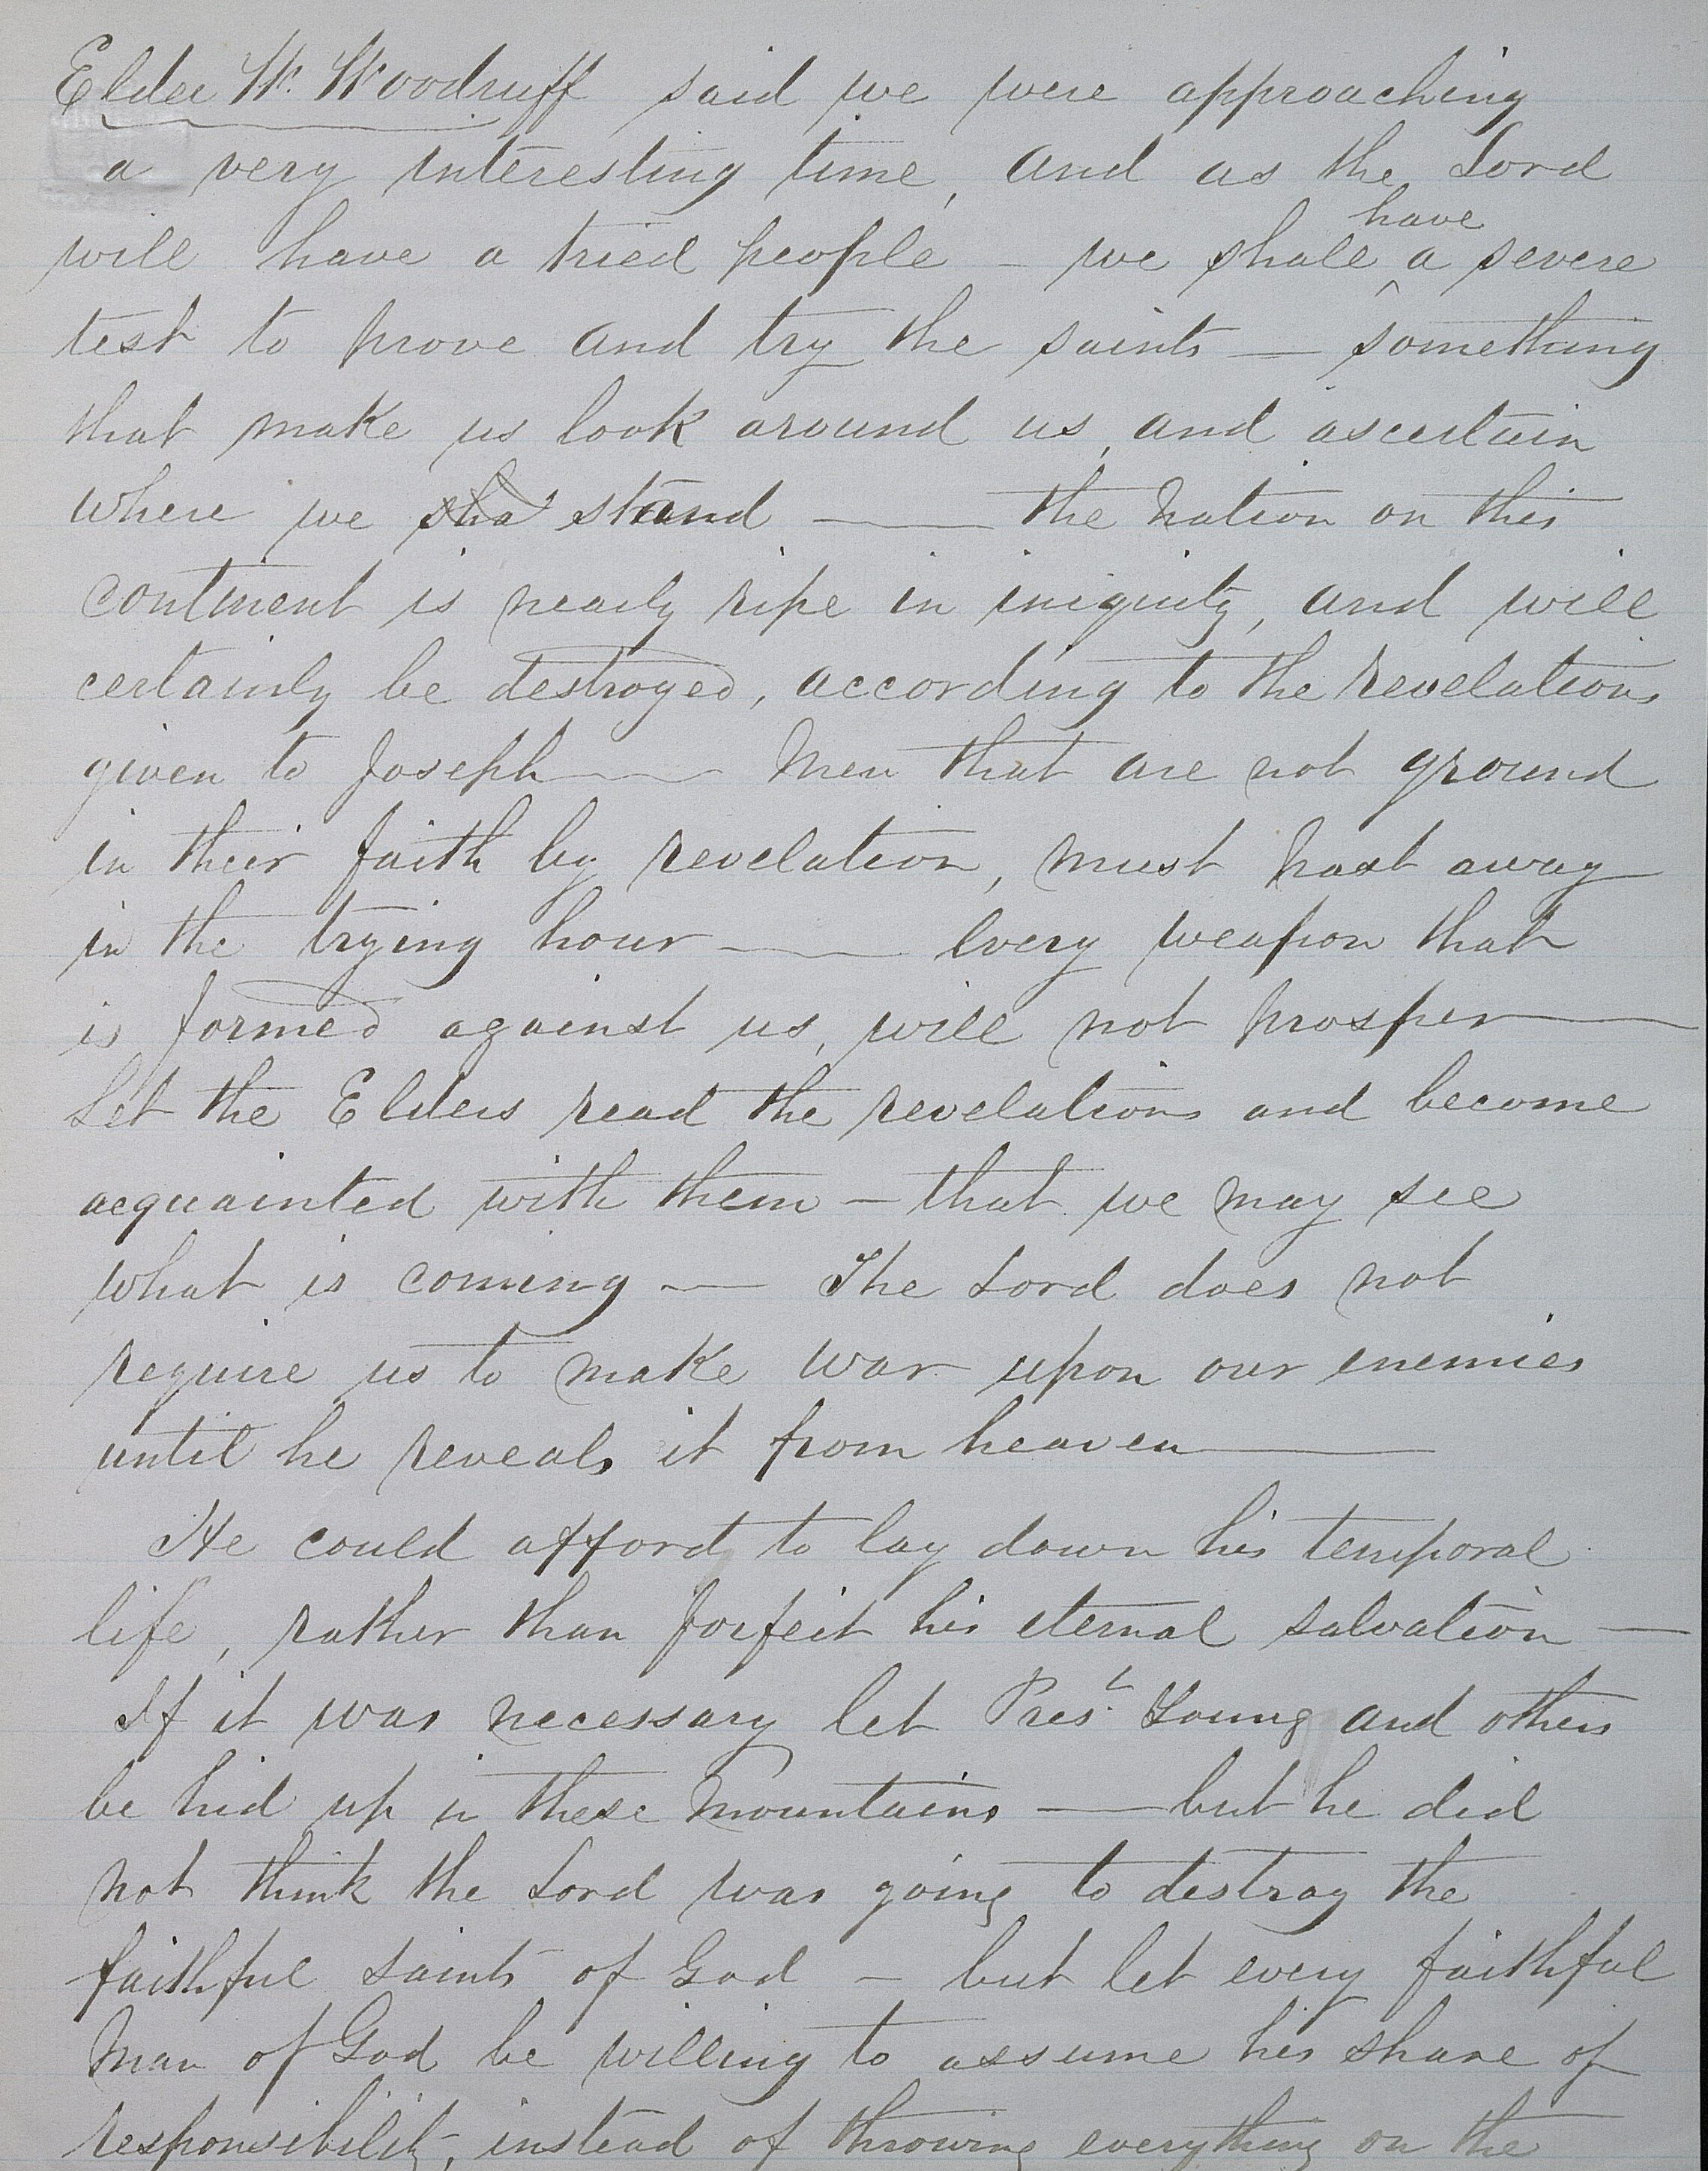 Elder W. Woodruff said we were approaching
a very interesting time, and as the Lord
will have a tried people – we shall have a severe
test to prove and try the saints — something
that make us look around us, and ascertain
where we sha stand — the nation on this
continent is nearly ripe in iniquity, and will
certainly be destroyed, according to the revelations
given to Joseph — Men that are not ground
in their faith by revelation, must past away
in the trying hour — Every weapon that
is formed against us, will not prosper —
Let the Elders read the revelations and become
acquainted with them – that we may see
what is coming — The Lord does not
require us to make war upon our enemies
until he reveals it from heaven —
He could afford to lay down his temporal
life, rather than forfeit his eternal salvation —
If it was necessary let Prest. Young and others
be hid up in these mountains — but he did
not think the Lord was going to destroy the
faithful saints of God – but let every faithful
man of God be willing to assume his share of
responsibility, instead of throwing everything on the